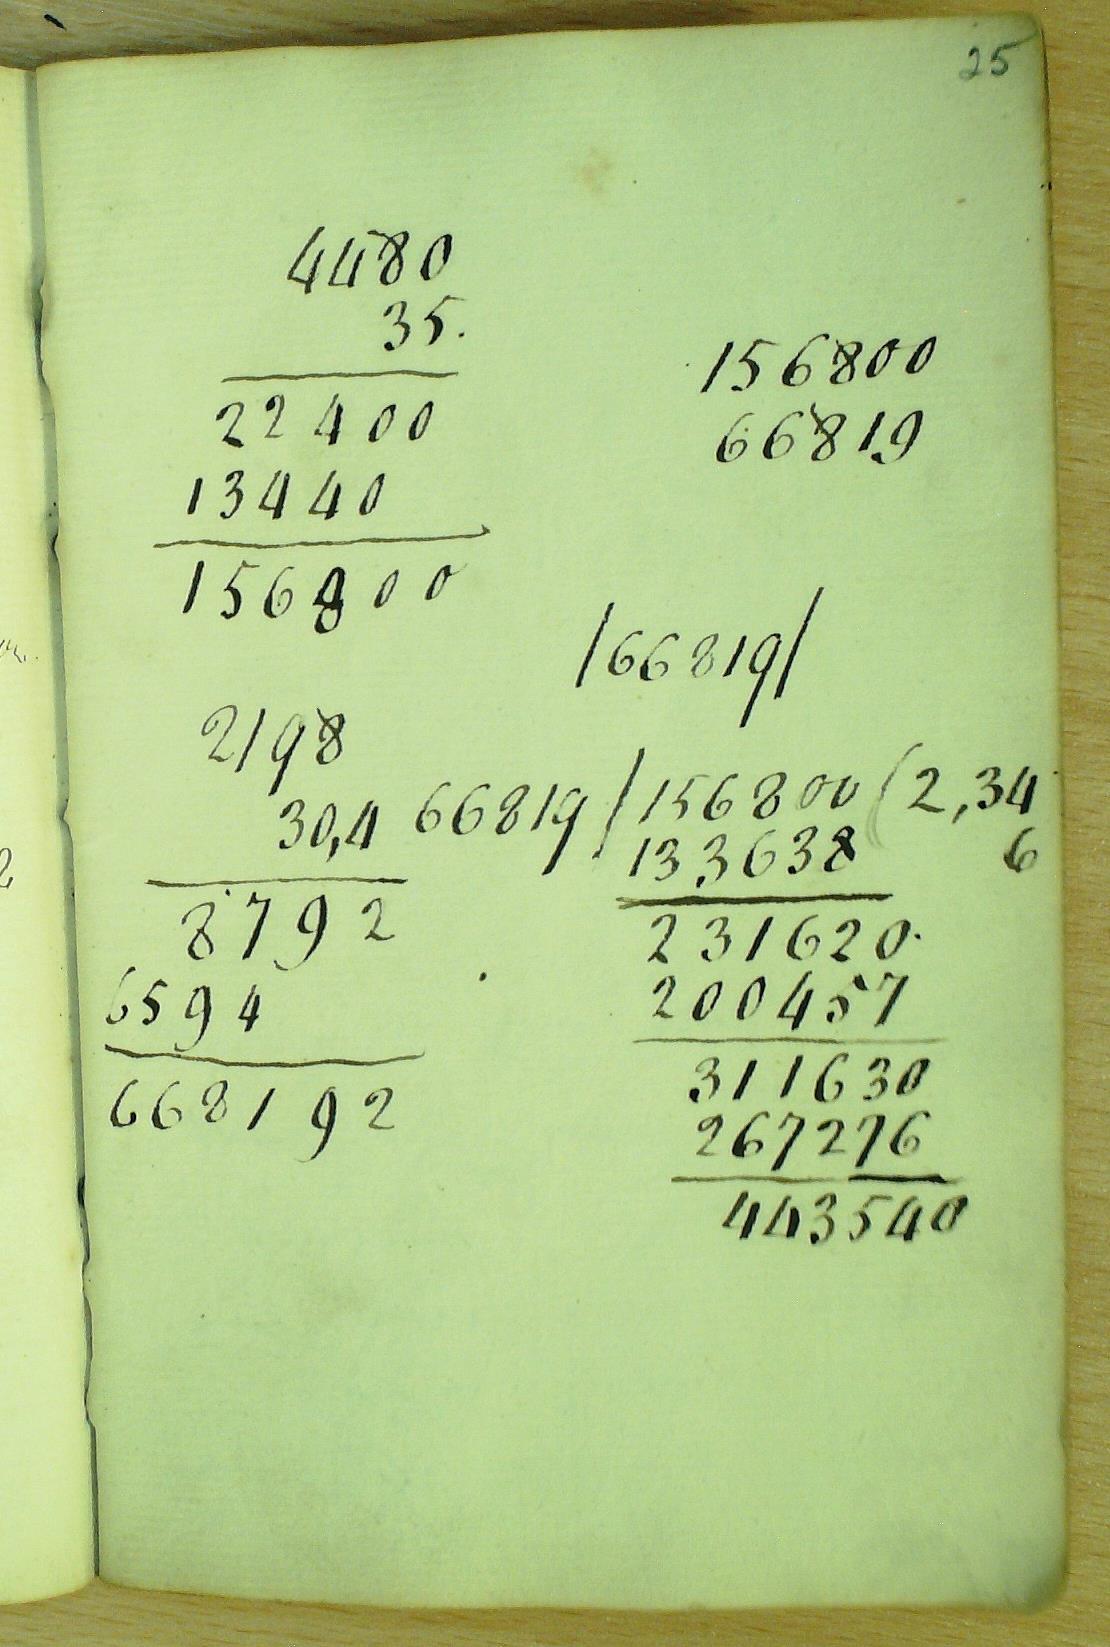 25
4480
35.
22400
13440
156800
156800
66819
/66819/
2198
30,4
8792
6594
668192
66819/156800(2,34
6
133638
231620.
200457
311630
267276
443540